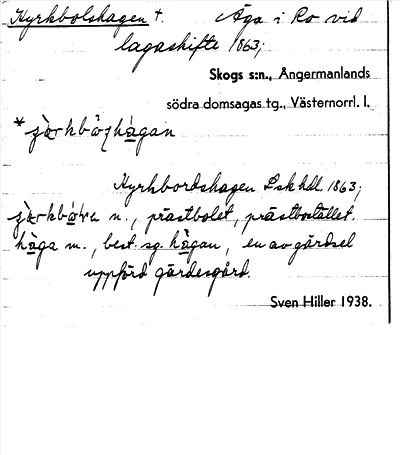 Kyrkbolshagen †. Äga i Ro vid
lagaskifte 1863;
Skogs s:n., Ångermanlands
södra domsagas tg., Västernorrl. l.
Kyrkbordshagen Lskhdl. 1863;
n., prästbolet, prästbostället.
hàga m., best. sg. hàgan, en av gärdsel
uppförd gärdesgård.
Sven Hiller 1938.